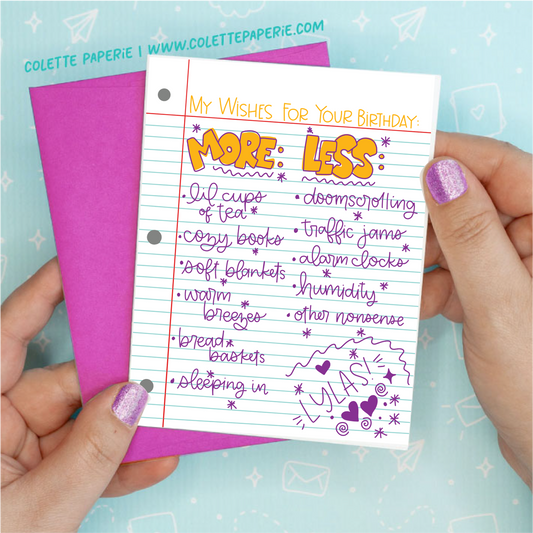 COLETTE PAPERIE | WWW.COLETTEPAPERIE.COM
MY WISHES FOR YOUR BIRTHDAY:
MORE: LESS:
• lil cups
of tea
• cozy books
• soft blankets
• warm
breezes
• bread
baskets
• sleeping in
• doomscrolling
• traffic jams
• alarm clocks
• humidity
• other nonsense
LYLAS!